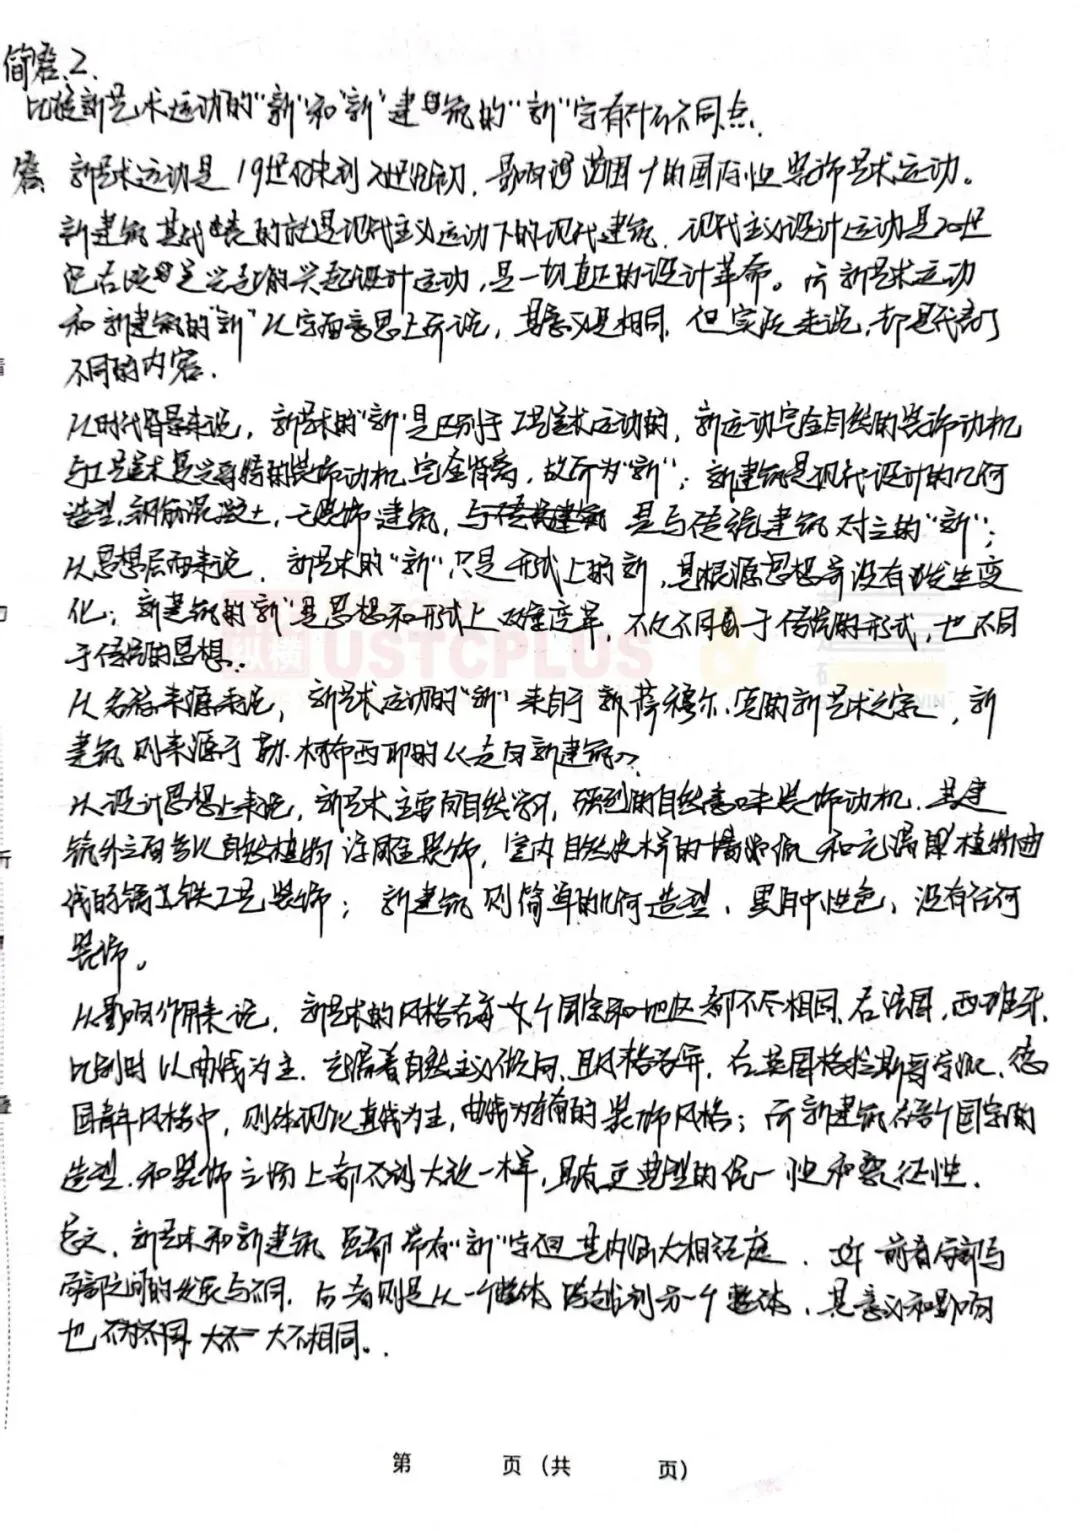 简答.2.
比较新艺术运动的"新"和"新"建筑的"新"字有什么不同点.
答 新艺术运动是19世纪末到20世纪初,影响 范围广的国际性装饰艺术运动。
新建筑其代表的就是现代主义运动下的现代建筑.现代主义设计运动是20世
纪 兴起的 设计运动,是一切真正的设计革命。而新艺术运动
和新建筑的"新"从字面意思上所说,其意义是相同,但实际来说,却是代表了
不同的内容.
从时代背景来说,新艺术的"新"是区别于工艺美术运动的,新运动完全自然的装饰动机
与工艺美术复兴哥特的装饰动机完全背离,故所为"新";新建筑是现代设计的几何
造型,钢筋混凝土,无装饰建筑, 是与传统建筑对立的"新";
从思想层面来说.新艺术的"新"只是形式上的新,其根源思想并没有发生变
化;新建筑的"新"是思想和形式上双重变革,不仅不同于传统的形式,也不同
于传统的思想.
从名称来源来说,新艺术运动的"新"来自于 萨穆尔.宾的新艺术之家,新
建筑则来源于勒.柯布西耶的《走向新建筑》
从设计思想上来说,新艺术主要向自然学习,强烈的自然意味装饰动机.其建
筑外立面常以自然植物浮雕装饰,室内自然 的墙 和充满 植物曲
线的铸铁工艺装饰;新建筑则简单的几何造型,黑白中性色,没有任何
装饰。
从影响作用来说,新艺术的风格在每一个国家和地区都不尽相同.在法国,西班牙,
比利时以曲线为主.充满着自然主义倾向,且风格各异.在英国格拉斯哥学派、德
国青年风格中,则体现以直线为主,曲线为辅的装饰风格;而新建筑在各个国家的
造型.和装饰立场上都 大致一样,具有更典型的统一性和象征性.
总之,新艺术和新建筑虽都带有"新"字但其内涵大相径庭. 前者局部与
局部之间的发展与不同.后者则是从一个整体跨越到另一个整体,其意义和影响
也 大不相同..
第 页(共 页)
USTCPLUS
纵横
&